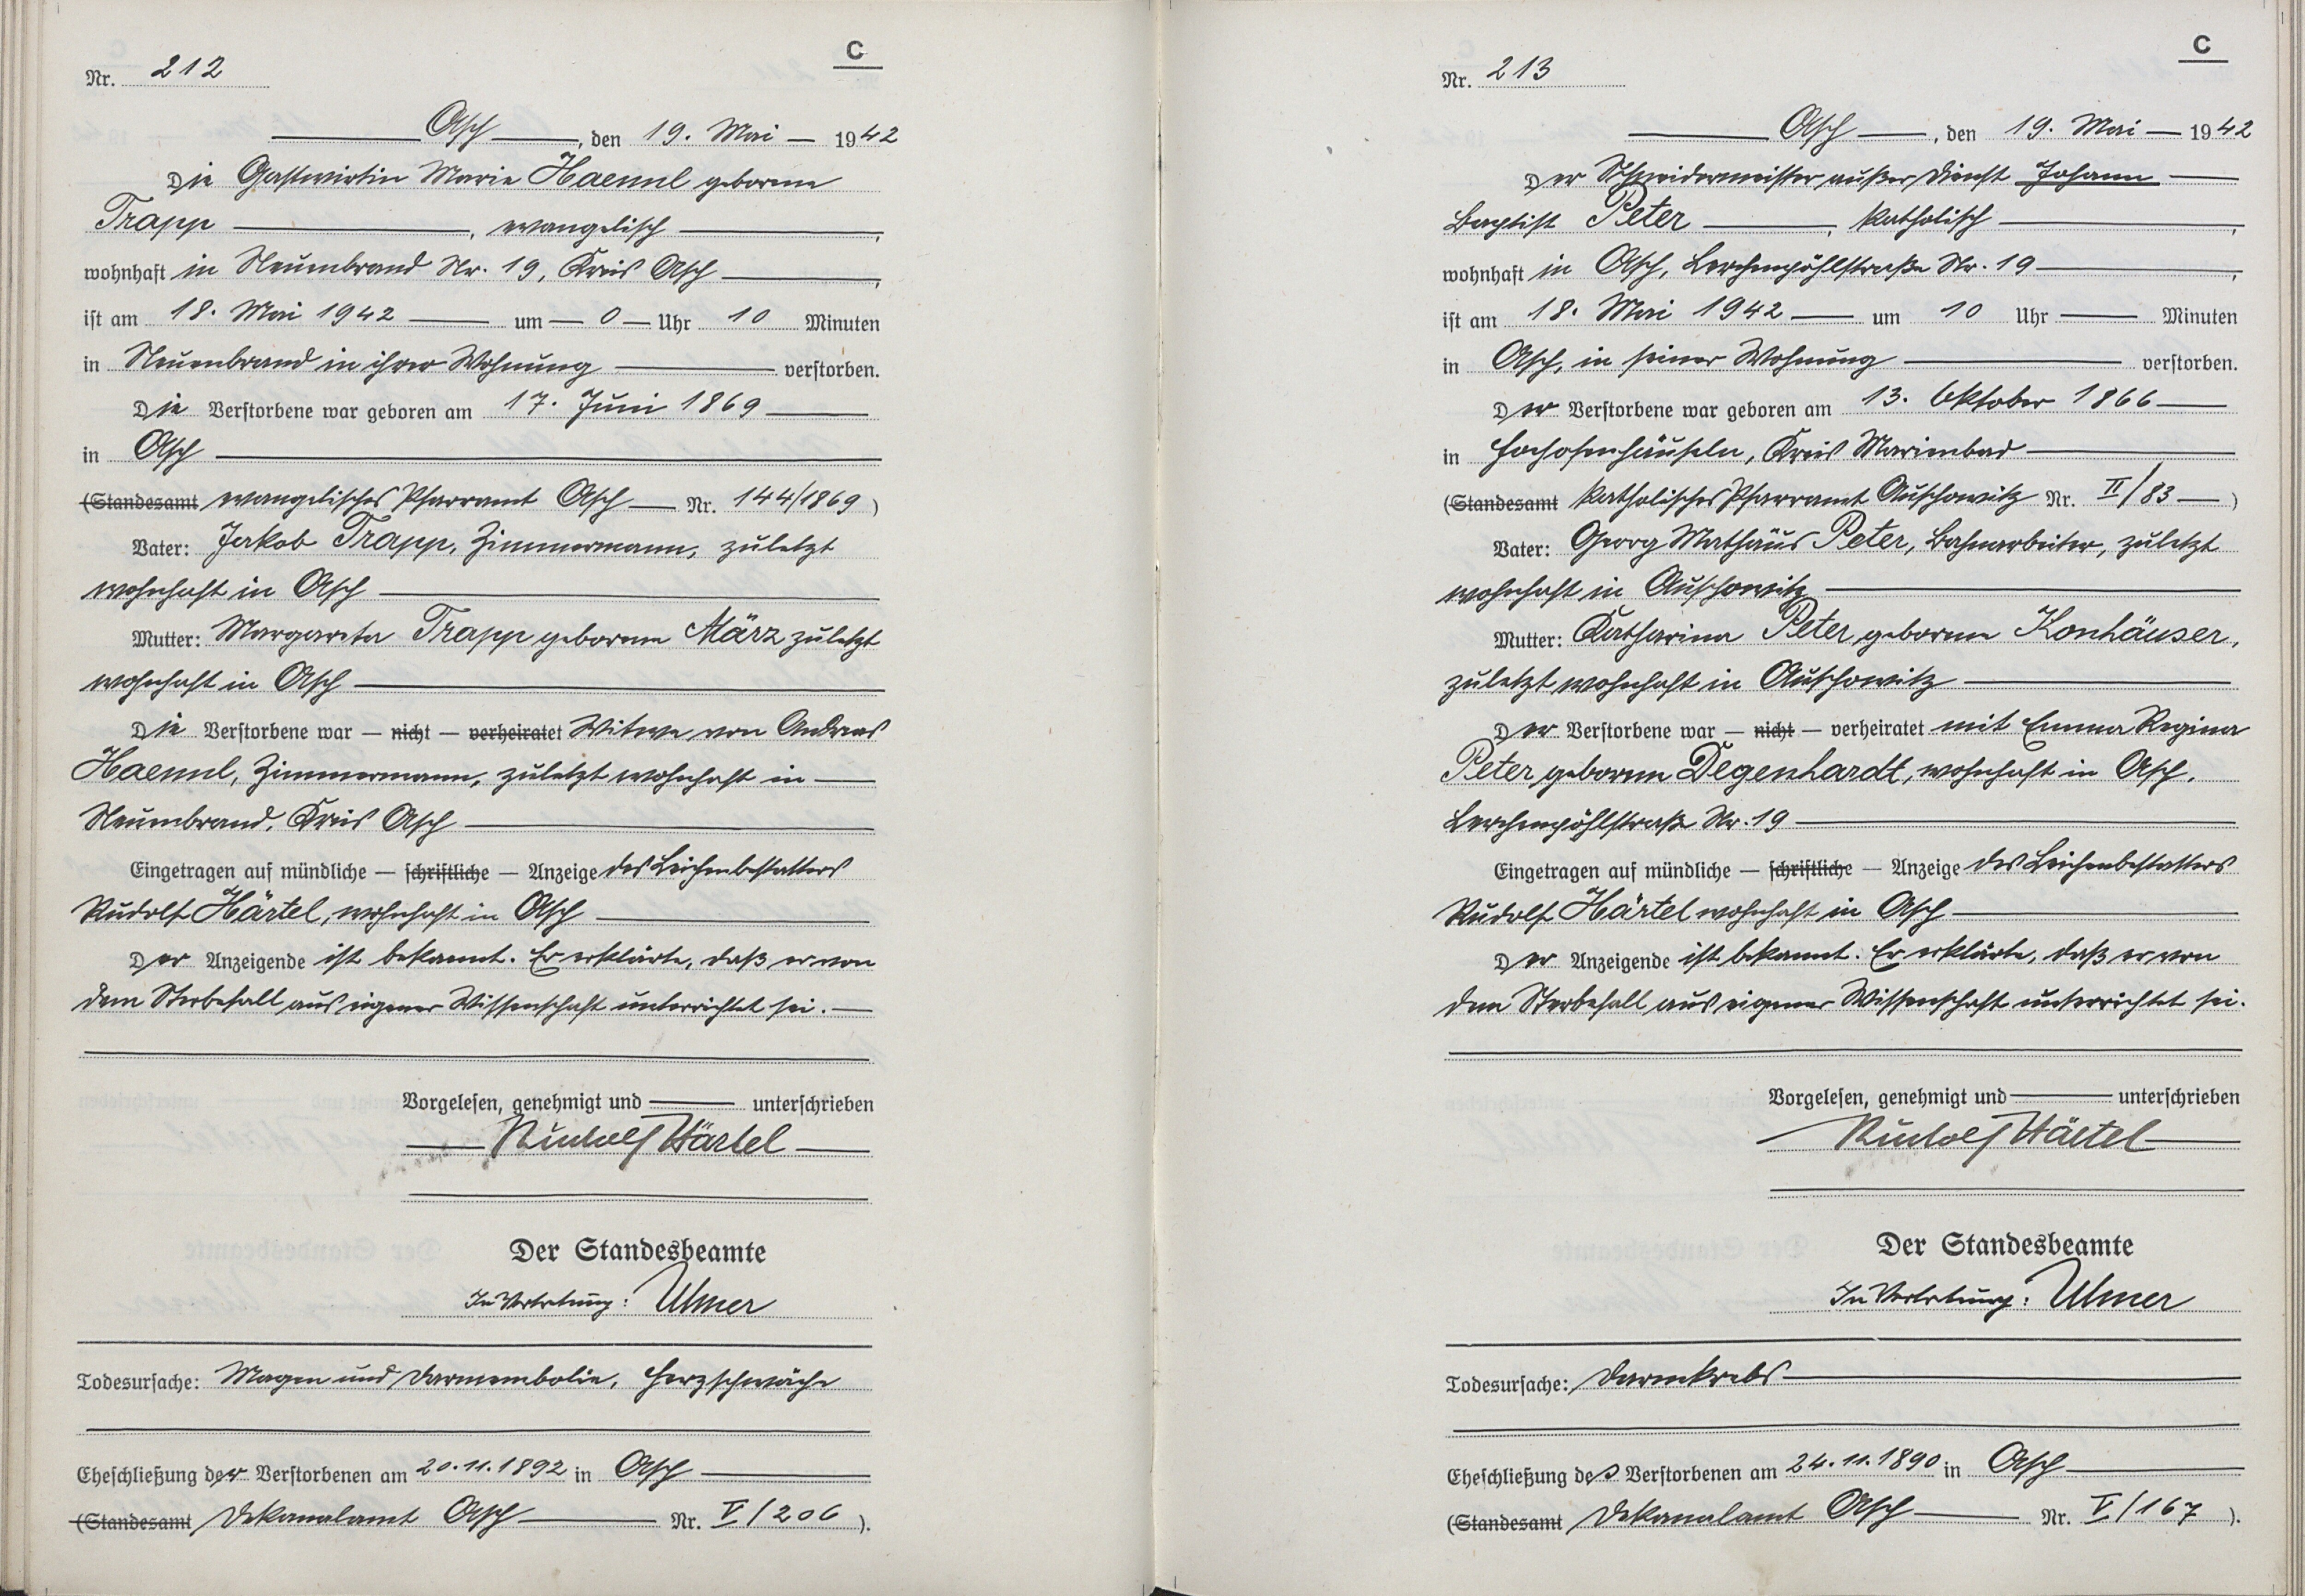 C
Nr. 212
Asch, den 19. Mai 1942
Die Gastwirtin Marie Haemml geborene
Trapp, evangelisch,
wohnhaft in Neuenbrand Nr. 19, Kreis Asch,
ist am 18. Mai 1942 um 0 Uhr 10 Minuten
in Neuenbrand in ihrer Wohnung verstorben.
Die Verstorbene war geboren am 17. Juni 1869
in Asch
(Standesamt evangelisches Pfarramt Asch Nr. 144/1869)
Vater: Jakob Trapp, Zimmermann, zuletzt
wohnhaft in Asch
Mutter: Margareta Trapp geborene März zuletzt
wohnhaft in Asch
Die Verstorbene war — nicht — verheiratet Witwe von Andreas
Haemml, Zimmermann, zuletzt wohnhaft in
Neuenbrand, Kreis Asch
Eingetragen auf mündliche — schriftliche — Anzeige des Leichenbestatters
Rudolf Härtel, wohnhaft in Asch
Der Anzeigende ist bekannt. Er erklärte, daß er von
dem Sterbefall aus eigener Wissenschaft unterrichtet sei.
Vorgelesen, genehmigt und unterschrieben
Rudolf Härtel
Der Standesbeamte
In Vertretung: Ulmer
Todesursache: Magen und Darmembolie, Herzschwäche
Eheschließung der Verstorbenen am 20.11.1892 in Asch
(Standesamt Dekanalamt Asch Nr. V/206).
C
Nr. 213
Asch, den 19. Mai 1942
Der Schneidermeister außer Dienst Johann
Baptist Peter, katholisch,
wohnhaft in Asch, Lerchenpöhlstraße Nr. 19,
ist am 18. Mai 1942 um 10 Uhr Minuten
in Asch, in seiner Wohnung verstorben.
Der Verstorbene war geboren am 13. Oktober 1866
in Hochofenhäuseln, Kreis Marienbad
(Standesamt katholisches Pfarramt Auschowitz Nr. II/83)
Vater: Georg Mathäus Peter, Bahnarbeiter, zuletzt
wohnhaft in Auschowitz
Mutter: Katharina Peter geborene Konhäuser,
zuletzt wohnhaft in Auschowitz
Der Verstorbene war — nicht — verheiratet mit Emma Regina
Peter geborene Degenhardt, wohnhaft in Asch,
Lerchenpöhlstraße Nr. 19
Eingetragen auf mündliche — schriftliche — Anzeige des Leichenbestatters
Rudolf Härtel wohnhaft in Asch
Der Anzeigende ist bekannt. Er erklärte, daß er von
dem Sterbefall aus eigener Wissenschaft unterrichtet sei.
Vorgelesen, genehmigt und unterschrieben
Rudolf Härtel
Der Standesbeamte
In Vertretung: Ulmer
Todesursache: Darmkrebs
Eheschließung des Verstorbenen am 24.11.1890 in Asch
(Standesamt Dekanalamt Asch Nr. V/167).